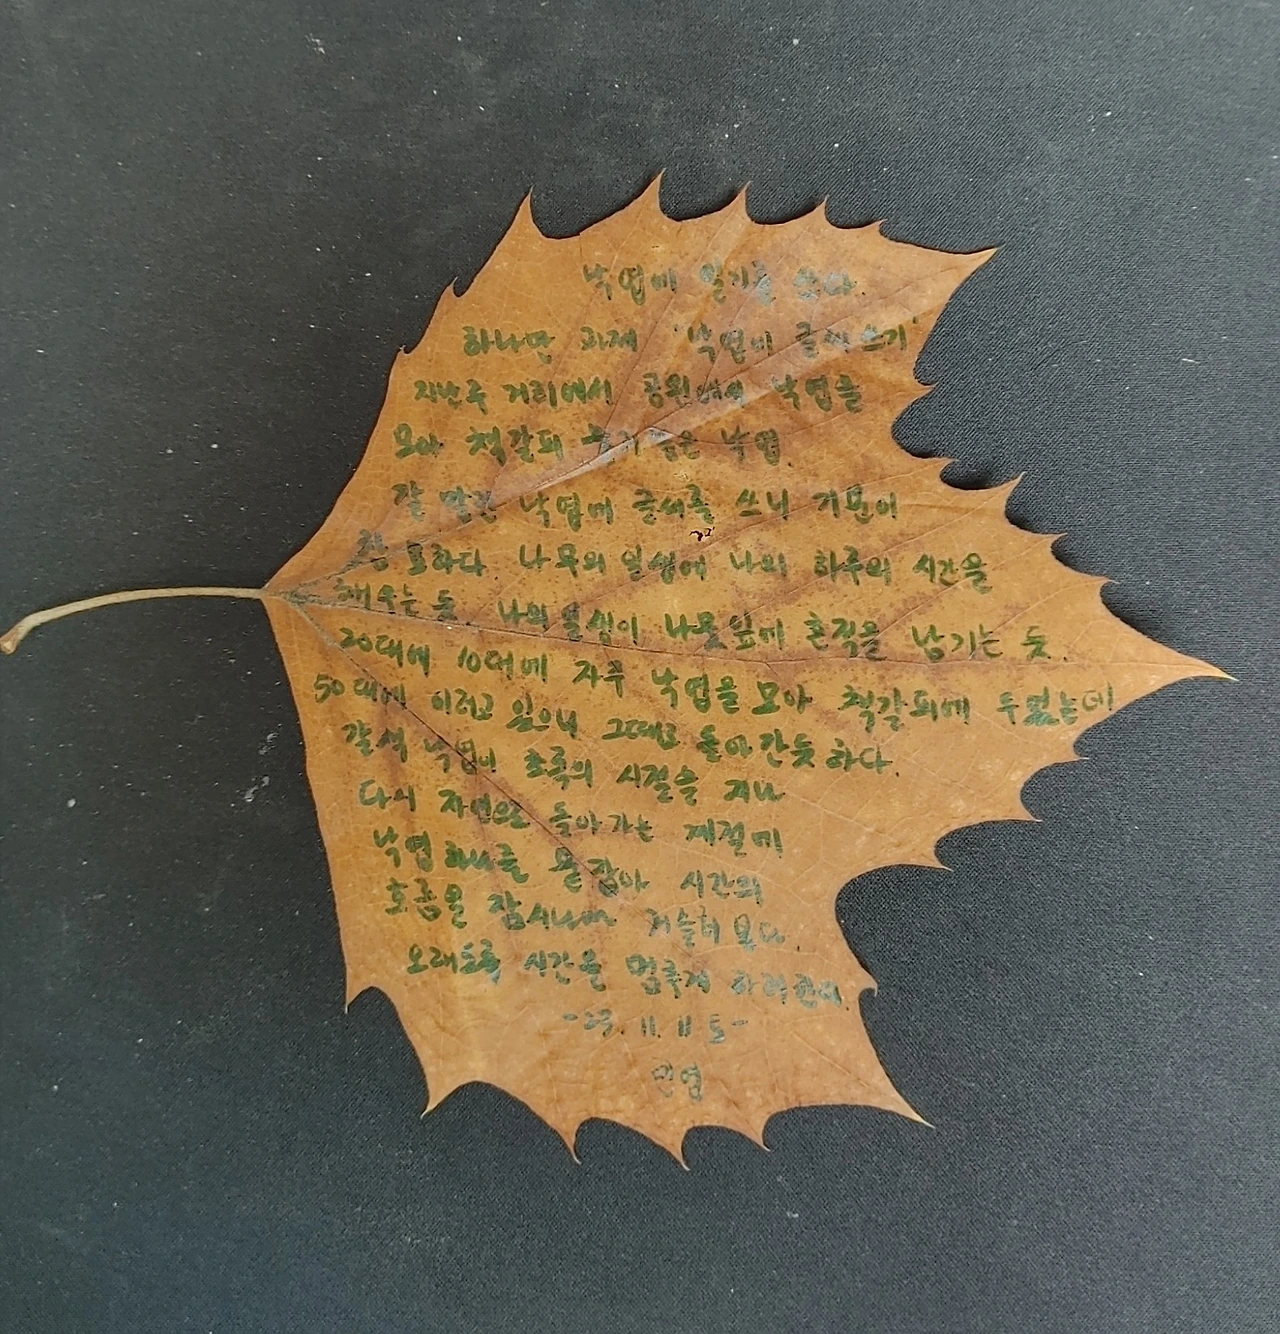 낙엽에 일기를 쓰다.
하나만 과제 '낙엽에 글씨쓰기'
지난주 거리에서 공원에서 낙엽을
모아 책갈피 낙엽.
잘 말린 낙엽에 글씨를 쓰니 기분이
묘하다 나무의 일생에 나의 하루의 시간을
채우는 듯. 나의 일생이 나뭇잎에 흔적을 남기는 듯.
20대에 10대에 자주 낙엽을 모아 책갈피에 두었는데
50대에 이러고 있으니 그때로 돌아간듯 하다.
갈색 낙엽이 초록의 시절을 지나
다시 자연으로 돌아가는 계절에
낙엽 하나를 붙잡아 시간의
흐름을 잠시나마 거슬러 본다.
오래도록 시간을 멈추게 하려한다.
-23. 11. 11 토-